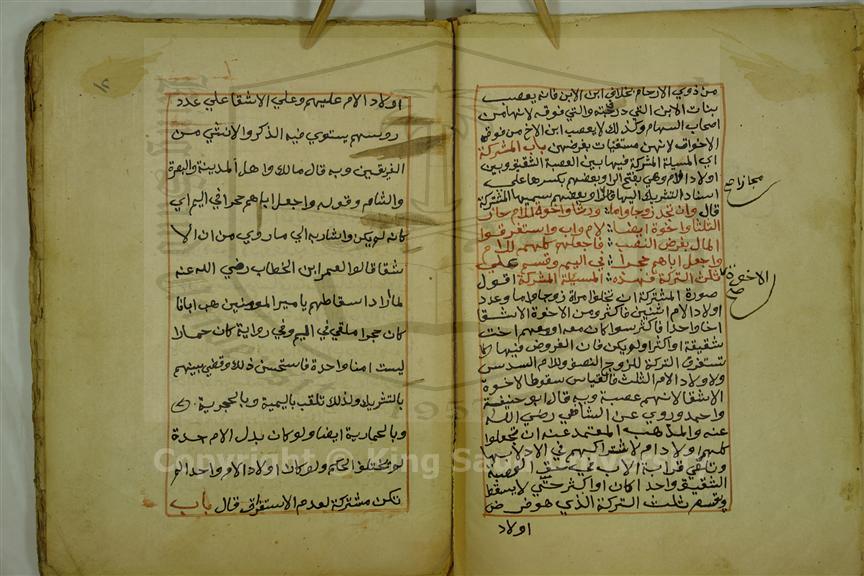 من ذوي الارحام بخلاف ابن الابن فانه يعصب
بنات الابن التي في درجته والتي فوقه لانها من
اصحاب السهام وكذلك لا يعصب ابن الاخ من فوقه
الاخوات لانهن مستغنيات بفرضهن باب المشتركة
اي المسيلة المشتركة فيها بين العصبة الشقيق وبين
اولاد الام وهي بفتح الرا وبعضهم بكسرها على
اسناد التشريك اليها قال وبعضهم يسميها المشتركة
قال وان تجد زوجا واما ورثا واخوة للام حازوا
الثلثا واخوة ايضا لام واب واستغرقوا
المال بفرض النصب فاجعلهم كلهم للام
واجعل اباهم حجرا في اليم وقسم على
ثلث التركة فهذه المسيلة المشتركة اقول
صورة المشتركة ان تخلف امراة زوجا واما وعدد
اولاد الام اثنين فاكثر ومن الاخوة الاشقا
اخا واحدا فاكثر سوا كان معه او معهم اخت
شقيقة او اكثر او لم يكن فان الفروض فيها
تستغرق التركة للزوج النصف وللام السدس
ولاولاد الام الثلث فالقياس سقوط الاخوة
الاشقا لانهم عصبة وبه قال ابو حنيفة
واحمد وروي عن الشافعي رضي الله
عنه والمذهب المعتمد عنه ان تجعلوا
كلهم اولاد ام لاشتراكهم في الادلا بها
وتلغي قرابة الاب في حق العصبة
الشقيق واحدا كان او اكثر حتى لا يسقط
وقسم ثلث التركة الذي هو فرض
اولاد
مجاز اصح
الاخوة صح
اولاد الام عليهم وعلى الاشقا على عدد
روسهم يستوي فيه الذكر والانثي من
الفريقين وبه قال مالك واهل المدينة والبصرة
والشام وقوله واجعل اباهم حجرا في اليم اي
كانه لم يكن واشار به الى ما روي من ان الا
شقا قالوا لعمر ابن الخطاب رضي الله عنه
لما اراد اسقاطهم يا امير المومنين هب ابانا
كان حجرا ملقي في اليم وفي رواية كان حمارا
ليست امنا واحدة فاستحسن ذلك وقضي بينهم
بالتشريك ولذلك تلقب باليمية وبالحجرية
وبالحمارية ايضا ولو كان بدل الام جدة
لم يختلف الحكم ولو كان اولاد الام واحدا لم
تكن مشتركة لعدم الاستغراق قال باب
Copyright © King Saud University
1957